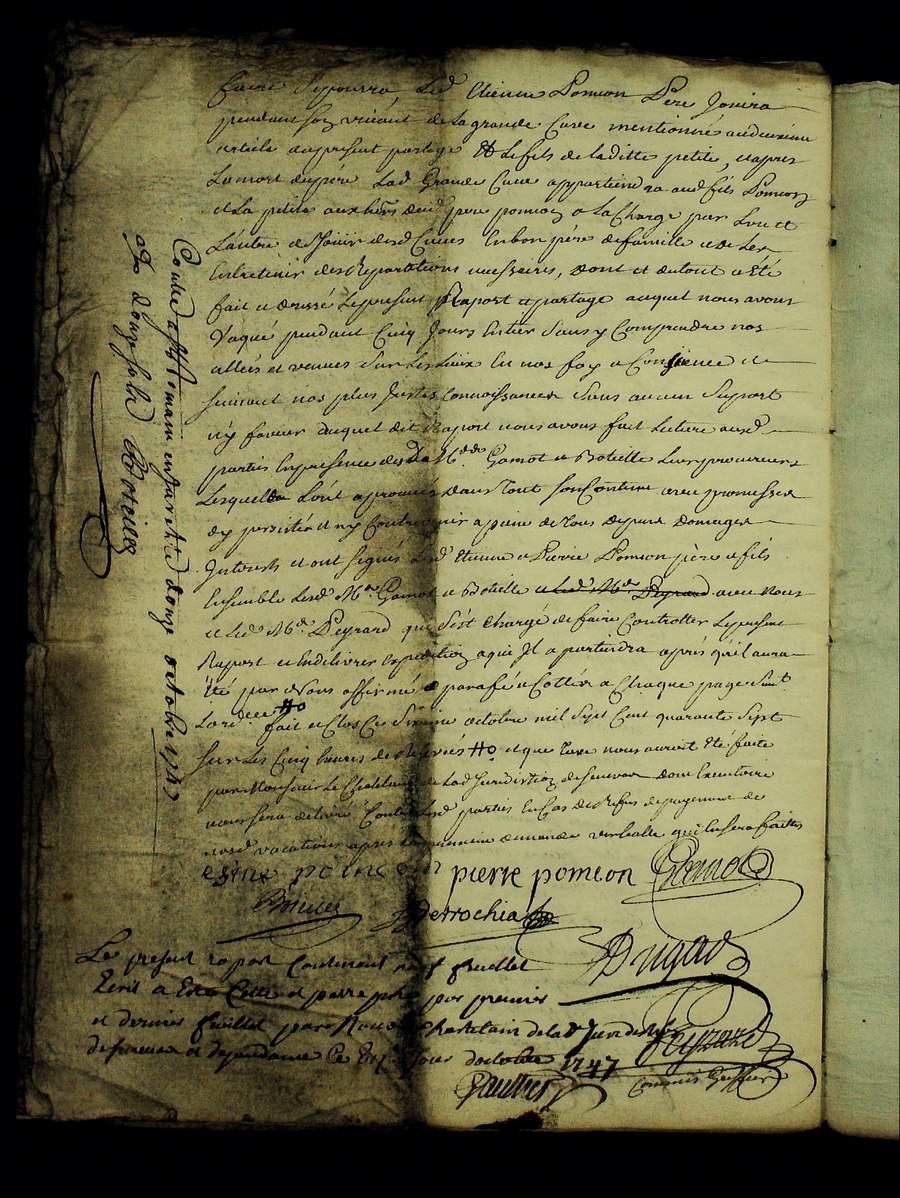 faire se pourra, Led Etienne Pomeon Pere Jouira
pendant son vivant de la grande Cave mentionnée audeuxieme
article du present partage Et Le fils de laditte petite, et apres
La mort du père Lad Grande Cave appartiendra aud fils Pomeon
et La petite aux hers dud pere pomeon a La Charge par L'un et
L'autre de Jouir desd Caves En bon père de famille et de Les
Entretenir des Reparations necessaires, dont et du tout a été
fait et dressé Le present Raport et partage auquel nous avons
Vaqué pendant Cinq Jours Entier Sans y Comprendre nos
allées et venues Sur Les Lieux En nos foy et Consience et
suivant nos plus Justes Connoissances Sans aucun Suport
n'y faveur duquel dit Raport nous avons fait Lecture auxd
parties En presence desd Mes Gamot et Boteille Leurs procureurs
Lesquelles L'ont aprouvé dans tout son Contenu avec promesses
d'y persister et n'y Contrevenir a peine de tous depens domages
Interests et ont signés Lesd Etienne et Pierre Pomeon père et fils
Ensemble Lesd Mes Gamot et Boteille et Led Me Peyrard avec Nous
et Led Me Peyrard qui s'est Chargé de faire Controller Le present
Raport et En delivrer expedition a qui Il apartiendra après qu'il aura
Eté par Nous affirmé et parafé et Cotté a Chaque page Suivt
L'ord fait et Clos Ce Sixieme octobre mil Sept Cent quarante Sept
sur Les Cinq heures de Relevées et que taxe nous auroit Eté faite
par Monsieur Le Chatelain de Lad Juridiction de dont Executoire
nous sera delivré Contre Lesd parties En Cas de Refus de payement de
nosd vacations après La premiere demande verballe qui Leur sera faitte
pierre pomeon Gamot
Derrochia
Dugas
Le present raport Contenant neuf feuillet
a Eté Cotté et par premier
et dernier feuillet par Nous Chastelain de la Jurisdon
et dependance Ce Jour d'octobre 1747
Peyrard
Commis Greffier
Gaultier
Controllé a St Romain octobre 1747
R douze sols Boteille